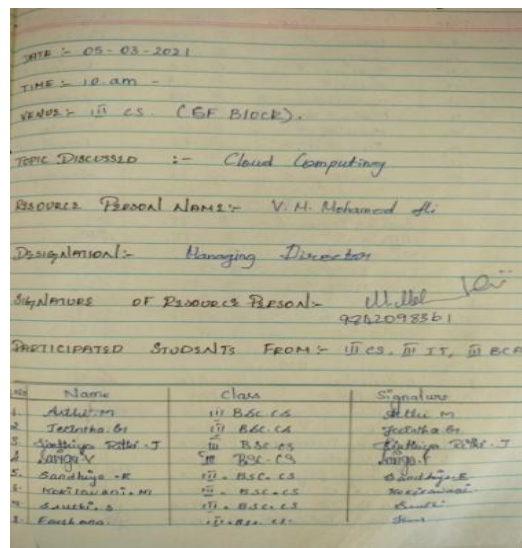 DATE :- 05-03-2021
TIME :- 10 am -
VENUE :- III CS (GF BLOCK).
TOPIC DISCUSSED :- Cloud Computing
RESOURCE PERSON NAME :- V. M. Mohamed Ali
DESIGNATION :- Managing Director
SIGNATURE OF RESOURCE PERSON :-
9242098361
PARTICIPATED STUDENTS FROM :- III CS, III IT, III BCA
Name Class Signature
1. Arthi.M III BSC.CS Arthi M
2. III BSC.CS
3. III BSC-CS
4. Sariga.V III BSC-CS Sariga.V
5. Sandhiya.E III - BSC.CS Sandhiya.E
6. III - BSC.CS
7. III - BSC.CS
8. Farhana III - BSC. CS